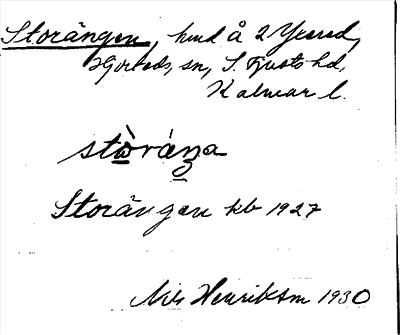 Storängen, hmd å 2 Yxered,
Hjorteds, sn, S. Tjusts hd,
Kalmar l.
stòráŋa
Storängen kb 1927
Nils Henriksm 1930